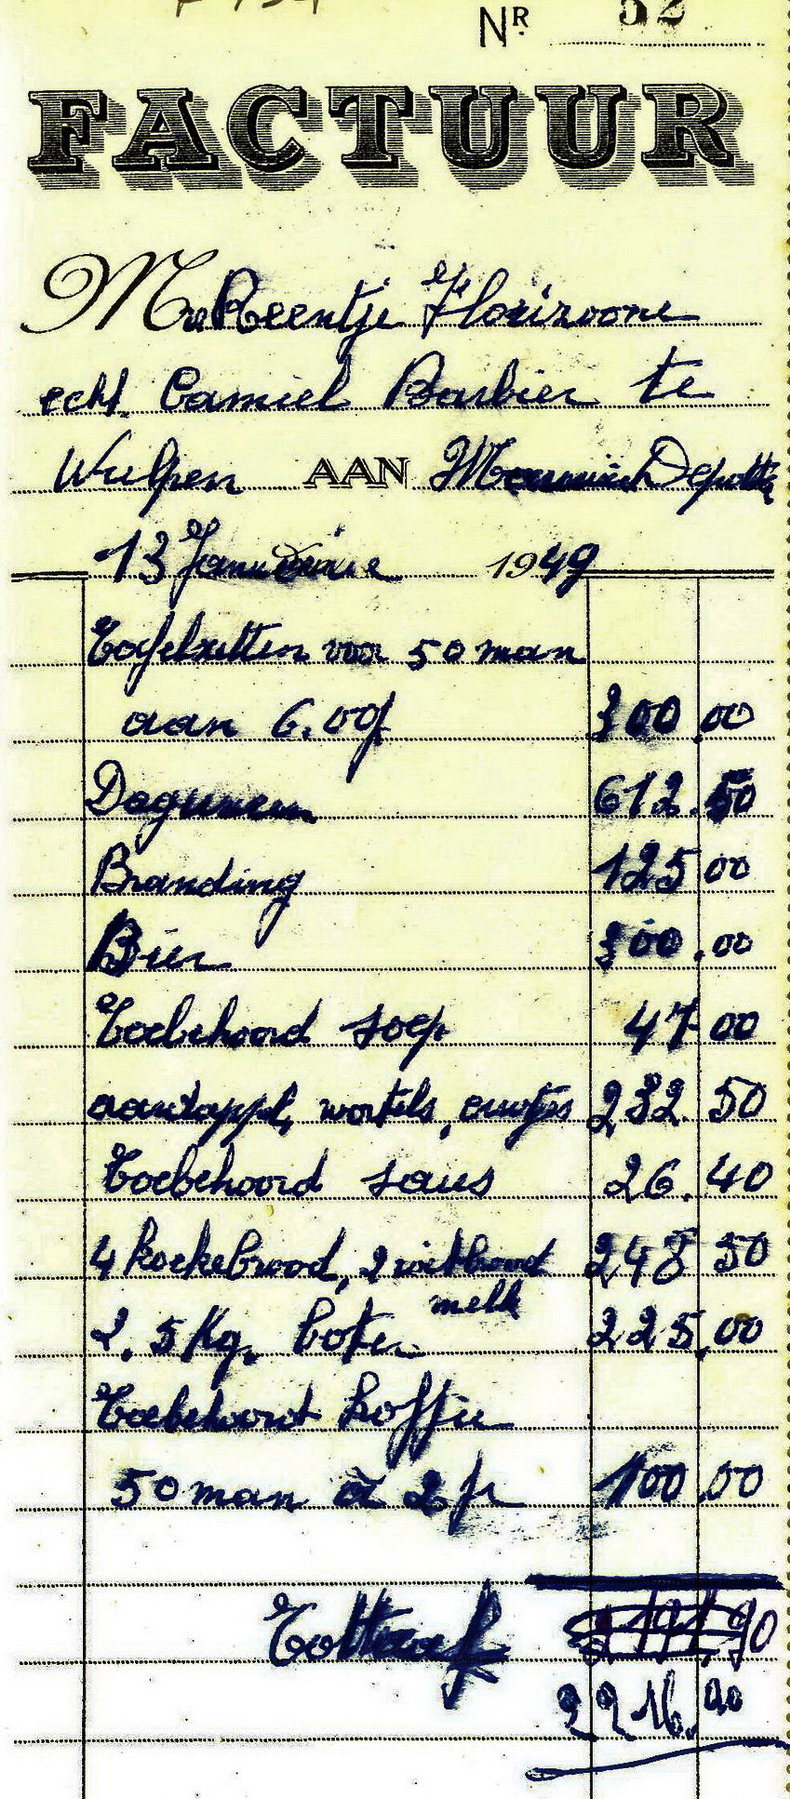 Nʀ 52
FACTUUR
Mv Reentje Florizoone
echt. Camiel Barbier te
Wulpen AAN Depotte
13 Januarie 1949
Tafelzetten voor 50 man
aan 6.00f 300.00
612.50
Branding 125 00
Bier 300.00
Toebehoord soep 47 00
aardappel, wortels, erwtjes 232.50
Toebehoord saus 26.40
4 koekebrood, 2 witbrood 248 50
melk
2.5 Kg. boter 225,00
Toebehoort koffie
50 man à 2 fr 100,00
2216.90